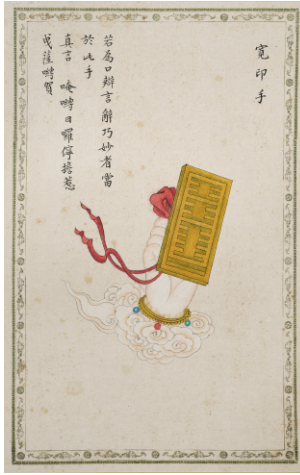 寬印手
若為口辯言辭巧妙者當
於此手
真言 唵嚩日囉儜擔惹
曳薩嚩賀